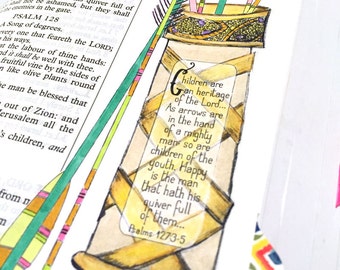 not be ashamed, but they
enemies in the gate.
PSALM 128
every one that feareth the LORD;
his ways.
the labour of thine hands:
it shall be well with thee.
fruitful vine by the sides of
like olive plants round
man be blessed that
out of Zion: and
Jerusalem all the
children, and
Children are
an heritage
of the Lord...
As arrows are
in the hand
of a mighty
man so are
children of the
youth. Happy
is the man
that hath his
quiver full
of them...
Psalms 127:3-5